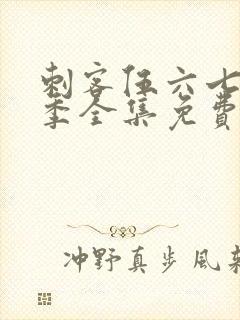 刺客伍六七
季全集免費
冲野真步風